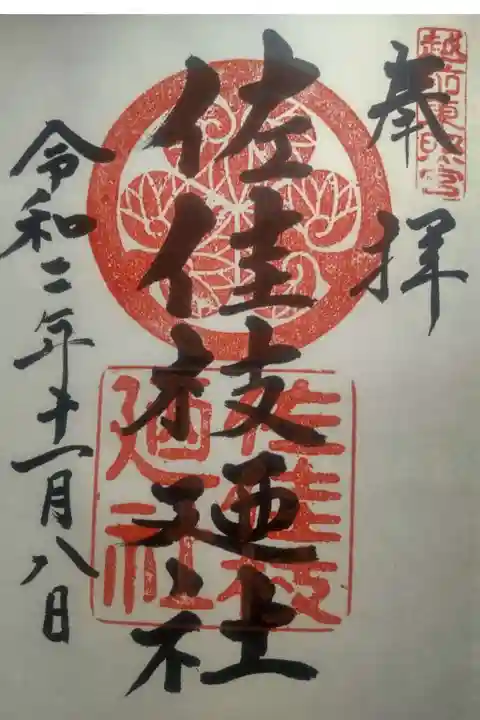 越前東照宮
奉拝
佐佳枝廼社
佐佳枝
廼社
令和二年十一月八日